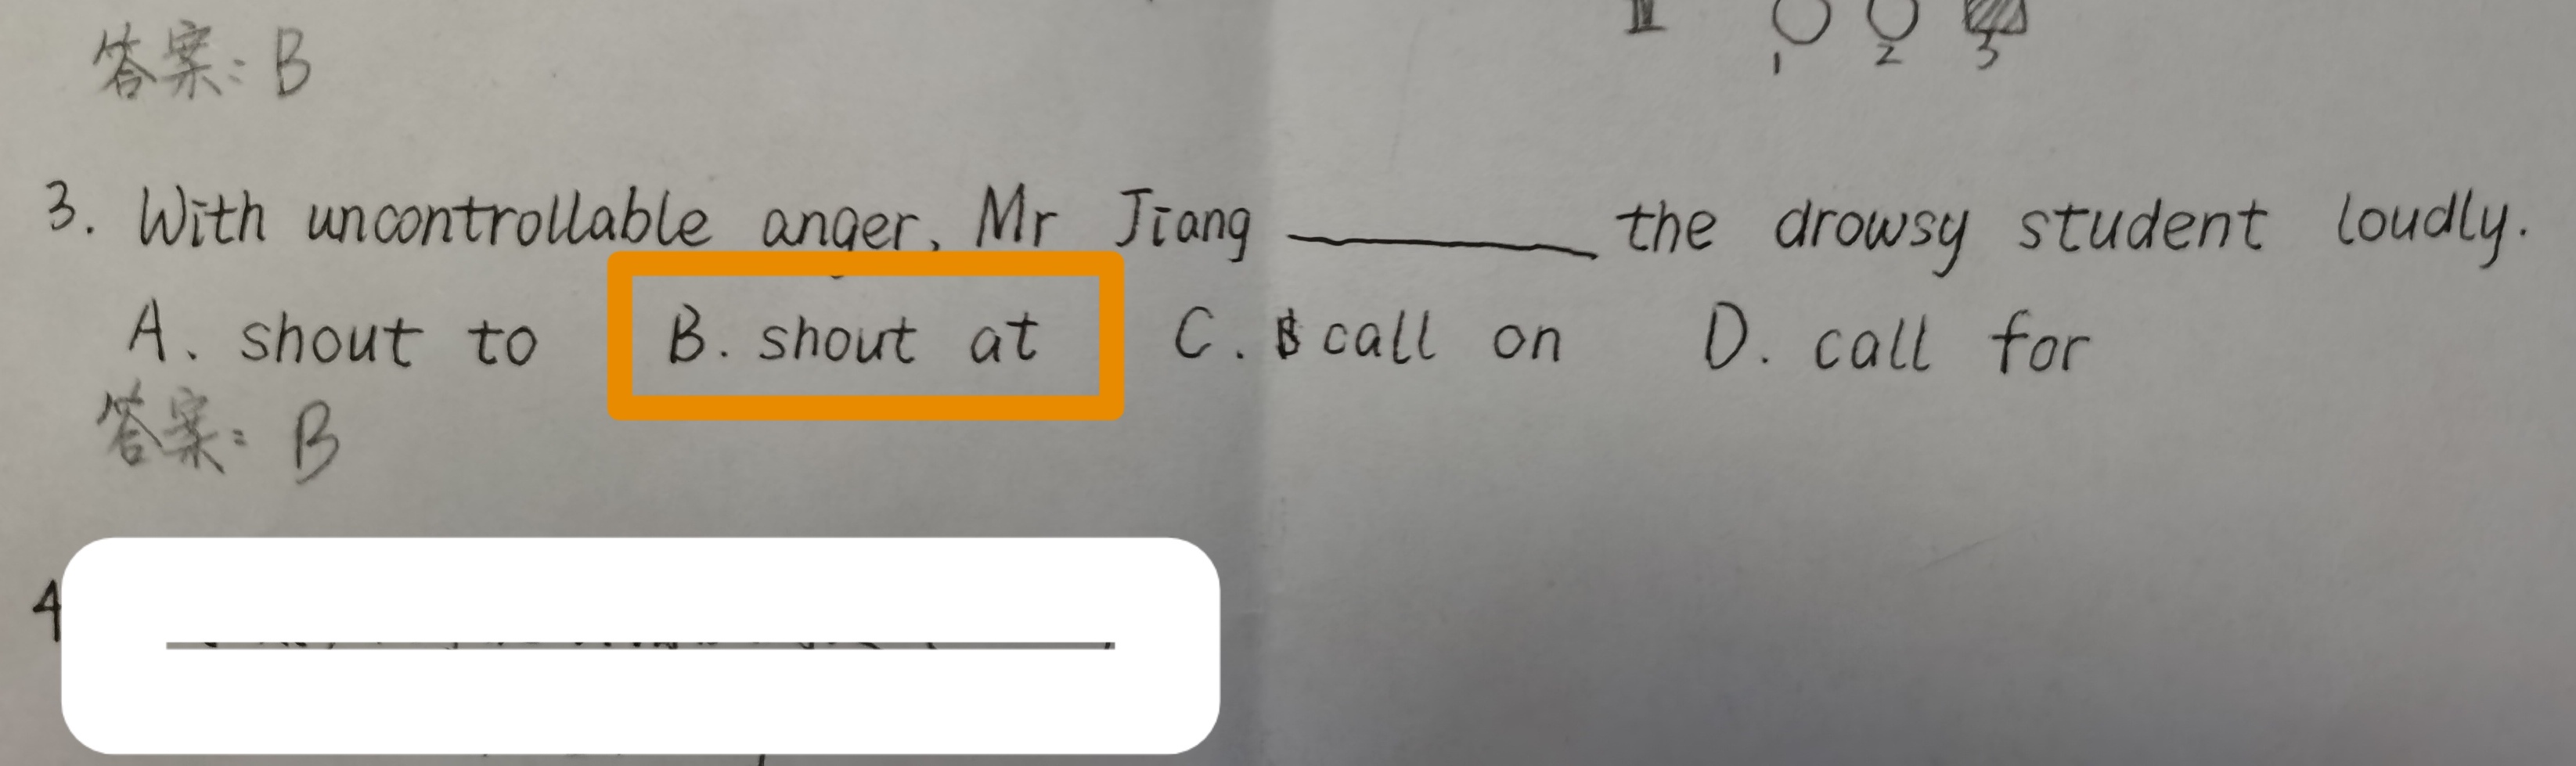 答案: B
II
1 2 3
3. With uncontrollable anger, Mr Jiang ________ the drowsy student loudly.
A. shout to B. shout at C. call on D. call for
答案: B
4